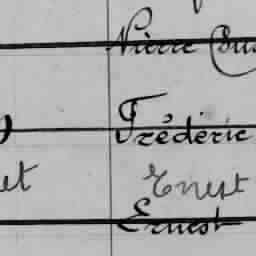 Pierre
Frédéric
et Ernest
Ernest